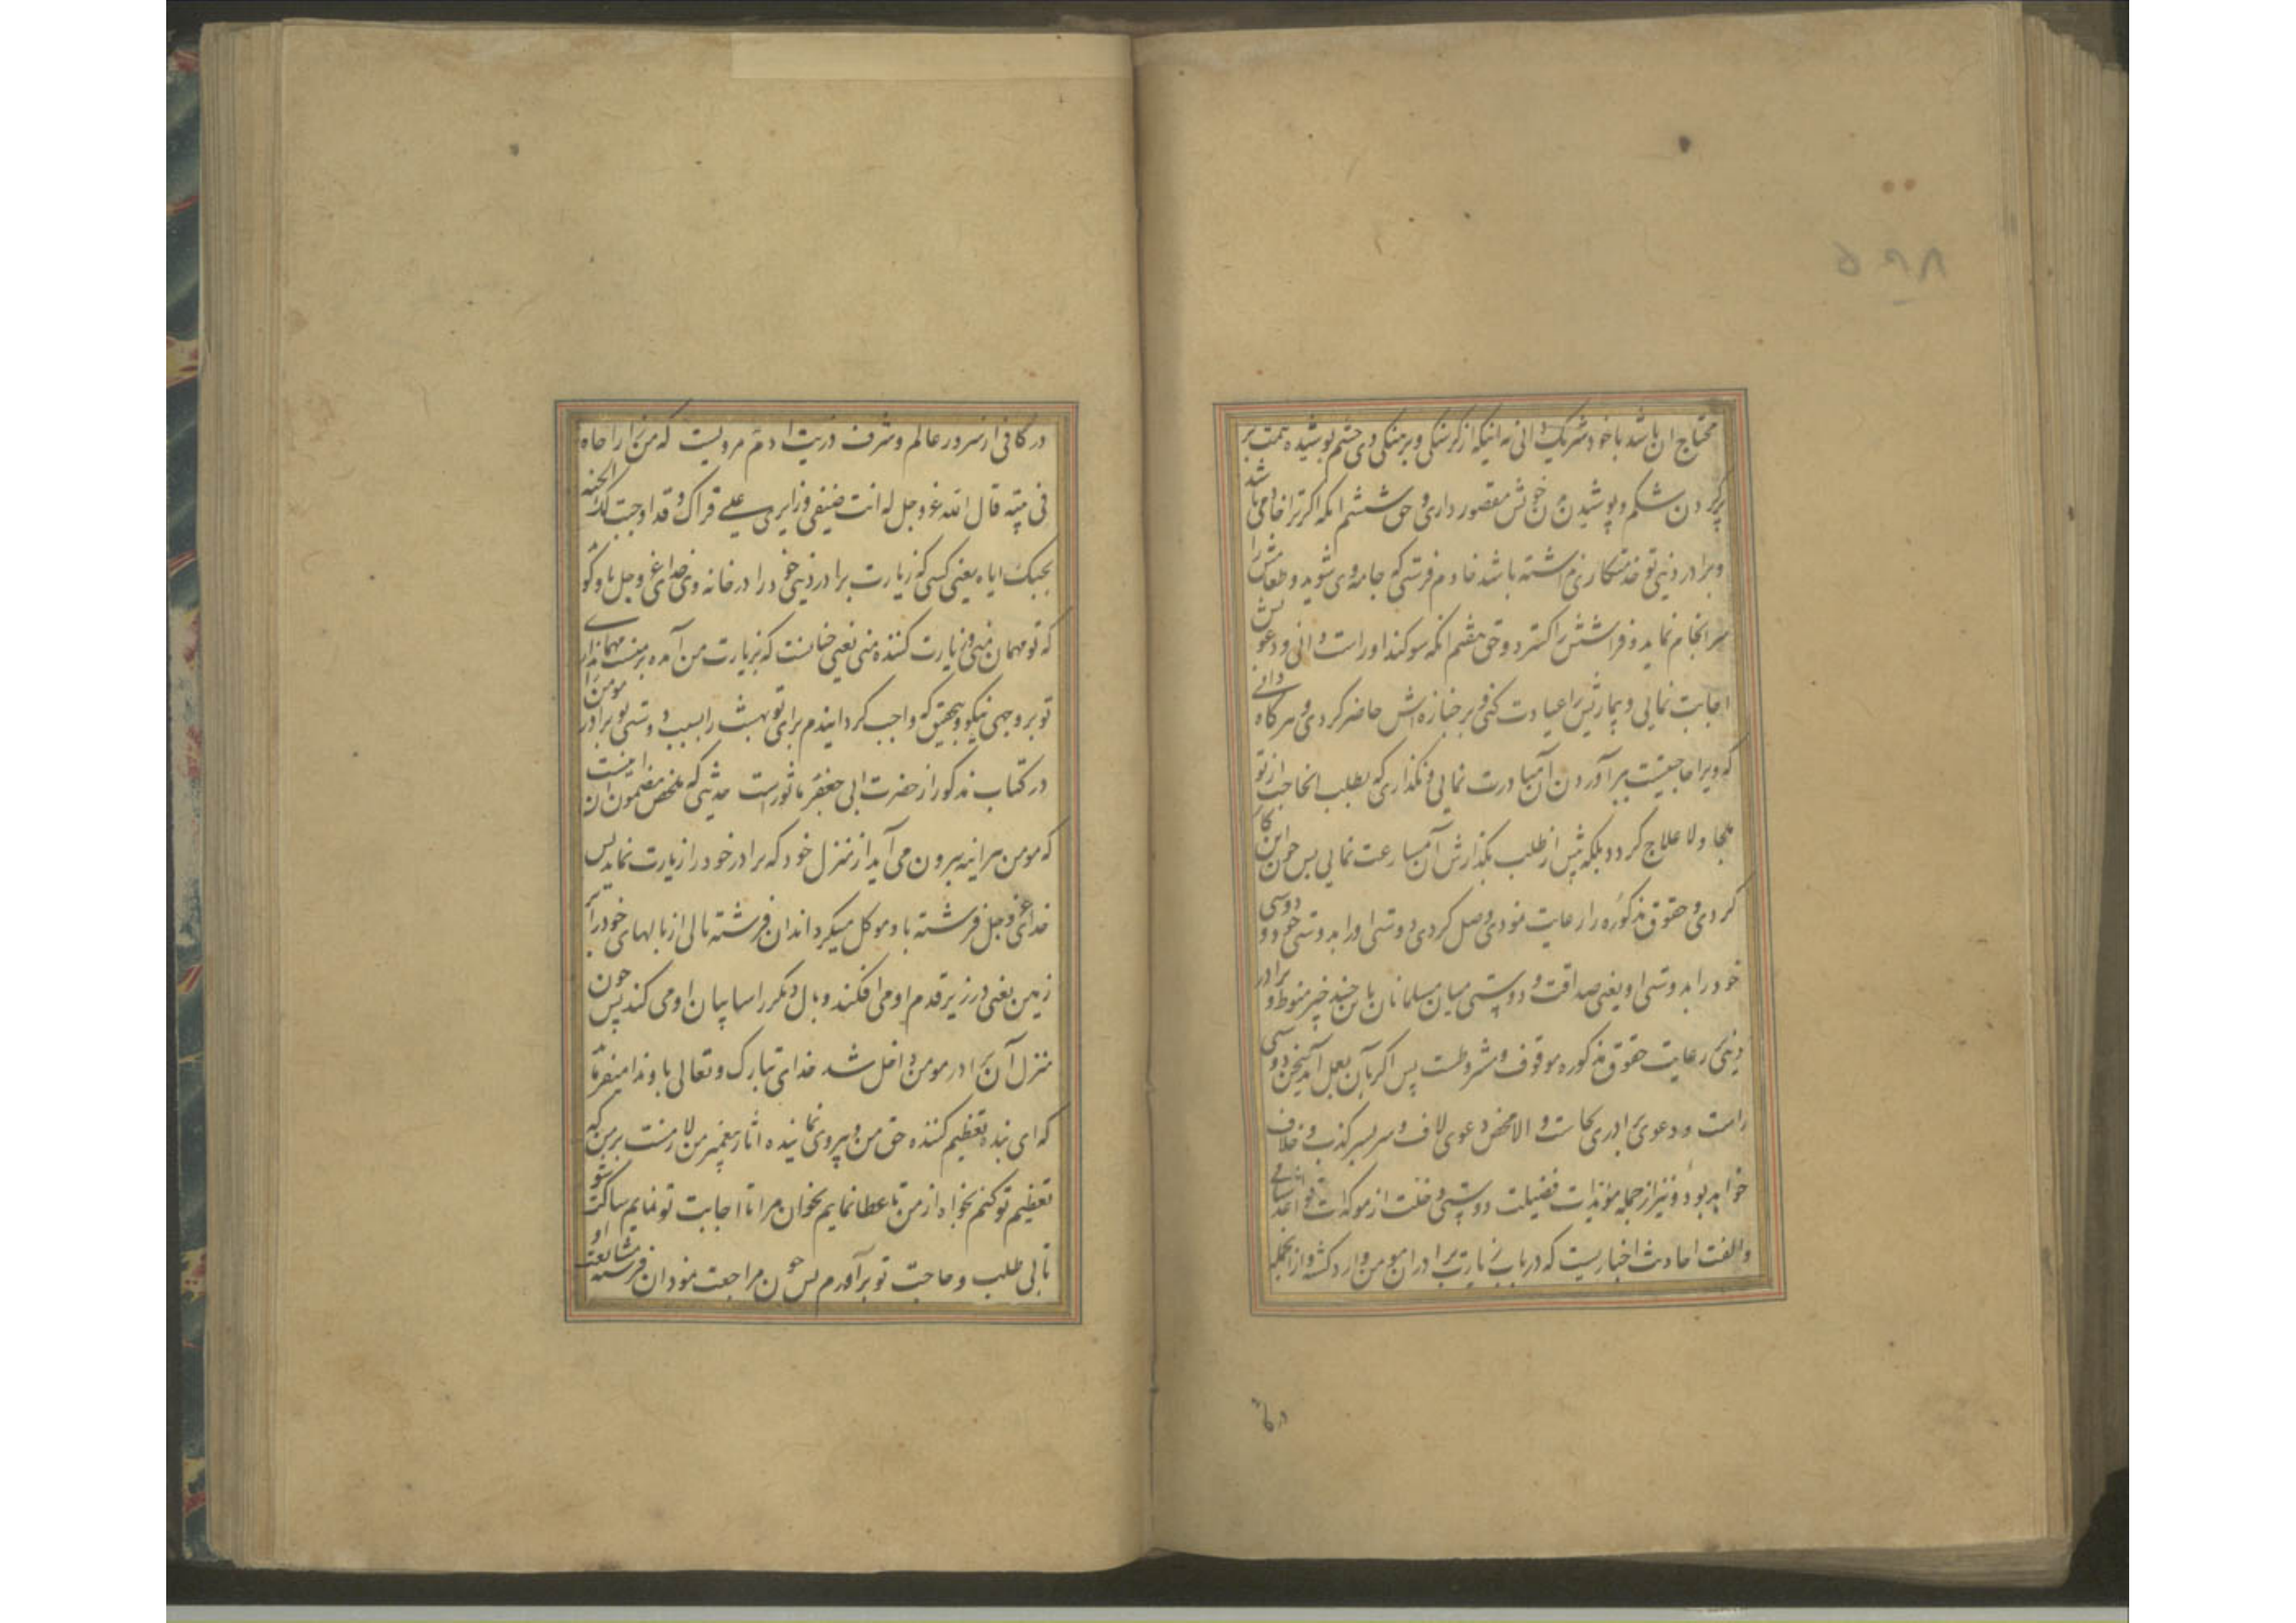 محتاج ان باشد با خود شریک دانی نه اینکه از کرسنکی و برهنکی وی چشم پوشیده همت بر
پر کردن شکم و پوشیدن تن خویش مقصور داری و حق ششم انکه اکر ترا خادمی باشد
و برادر دینی تو خدمتکاری نداشته باشد خادم فرستی که جامه وی شوید و طعامش را
سرانجام نماید و فراشش را کسترد و حق هفتم انکه سوکند او راست دانی و دعوتش
اجابت نمایی و بیمارش را عیادت کنی و بر جنازه اش حاضر کردی و هرکاه دانی
که ویرا حاجتیست ببرآوردن آن مبادرت نمایی و نکذاری که بطلب انحاجت از تو
ملجا و لا علاج کردد بلکه پیش از طلب بکذارش آن مسارعت نمایی پس چون این کار
کردی و حقوق مذکوره را رعایت نمودی وصل کردی دوستی او را بدوستی خود و دوستی
خود را بدوستی او یعنی صداقت و دوستی میان مسلمانان باین چند چیز منوط و برادر
دینی برعایت حقوق مذکوره موقوف و مشروطست پس اکر بآن بعمل آمد سخن دوستی
راست و دعوی برادری بجاست و الا محض دعوی لاف و سر بسر کذب و خلاف
خواهد بود و نیز از جمله مؤیدات فضیلت دوستی و خلت از موکدات
و الفت احادیث اخباریست که در باب زیارت برادران مومن وارد کشته و از انجمله
در کا
در کافی از سرور عالم و شرف ذریت ادم مرویست که من زار اخاه
فی بیته قال الله عز و جل له انت ضیفی و زایری علی قراک و قد اوجبت لک الجنه
بحبک ایاه یعنی کسی که زیارت برادر دینی خود را در خانه وی خدای عز و جل باو کوید
که تو مهمان منی و زیارت کننده منی یعنی چنانست که بزیارت من آمده بر منست مهمانداری
تو بر وجهی نیکو و بتحقیق که واجب کردانیدم برای تو بهشت را بسبب دوستی تو برادر مومن را
در کتاب مذکور از حضرت ابی جعفر ماثورست حدیثی که ملخص مضمون ان اینست
که مومن هراینه بیرون می آید از منزل خود که برادر خود را زیارت نماید پس
خدای عز و جل فرشته باو موکل میکرداند ان فرشته بالی از بالهای خود را بر
زمین یعنی در زیر قدم او می افکند و بال دیکر را سایبان او می کند پس چون
منزل آن برادر مومن داخل شد خدای تبارک و تعالی باو ندا میفرماید
که ای بنده تعظیم کننده حق من و پیروی نماینده اثار پیغمبر من لازمست بر من که
تعظیم تو کنم بخواه از من تا عطا نمایم بخوان مرا تا اجابت تو نمایم ساکت شو
تا بی طلب و حاجت تو برآورم پس چون مراجعت نمود ان فرشته مشایعت او